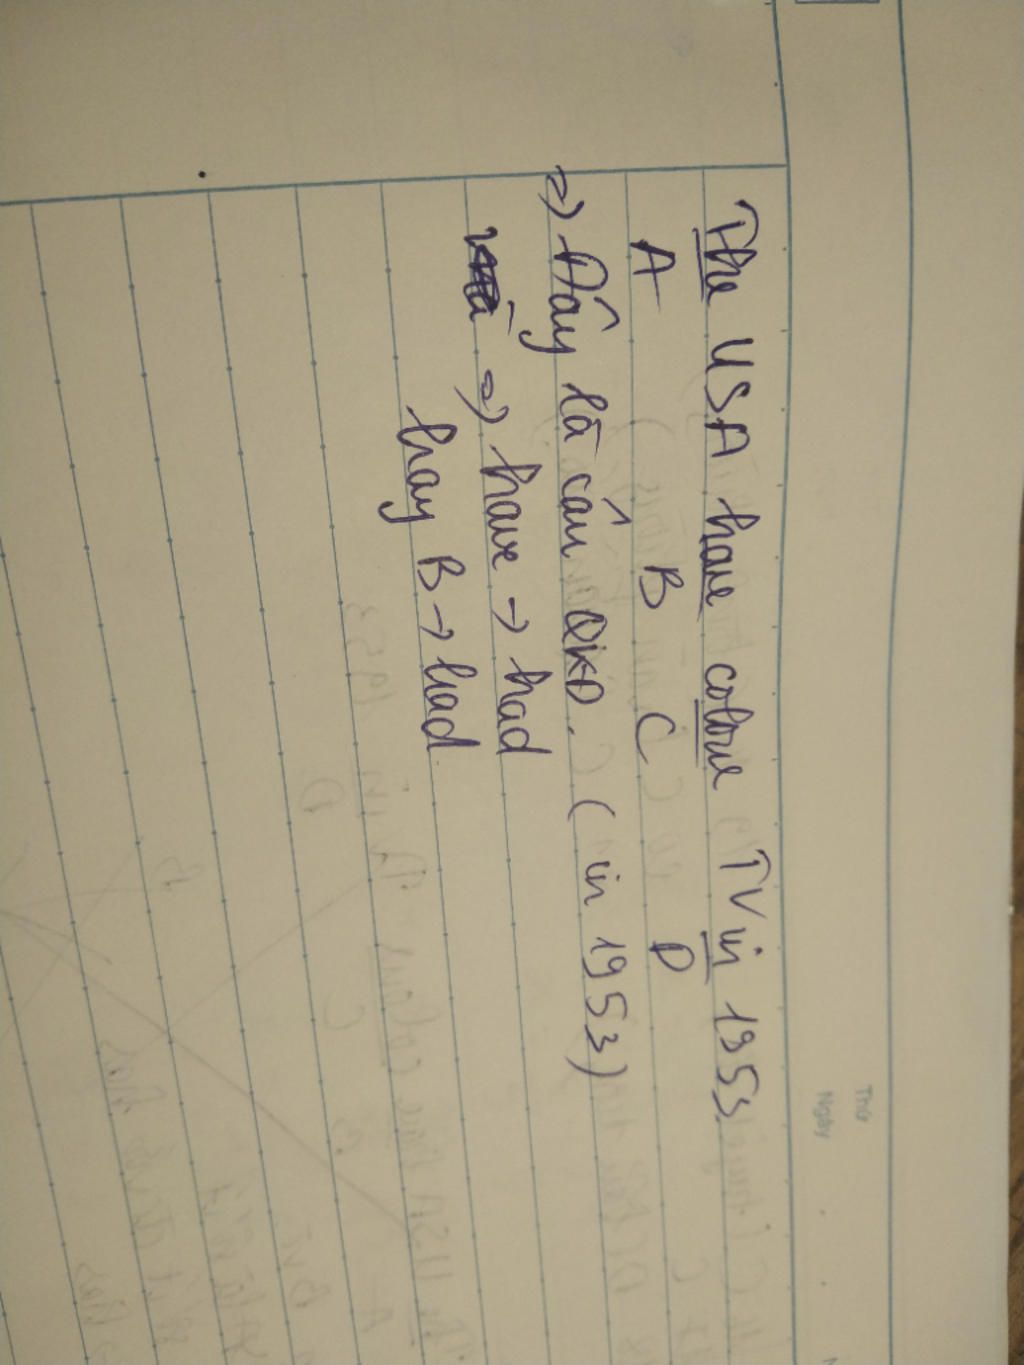 The USA have colour TV in 1953.
A B C D
=> Đây là câu QKĐ. (in 1953)
=> have -> had
hay B -> had
Thứ
Ngày